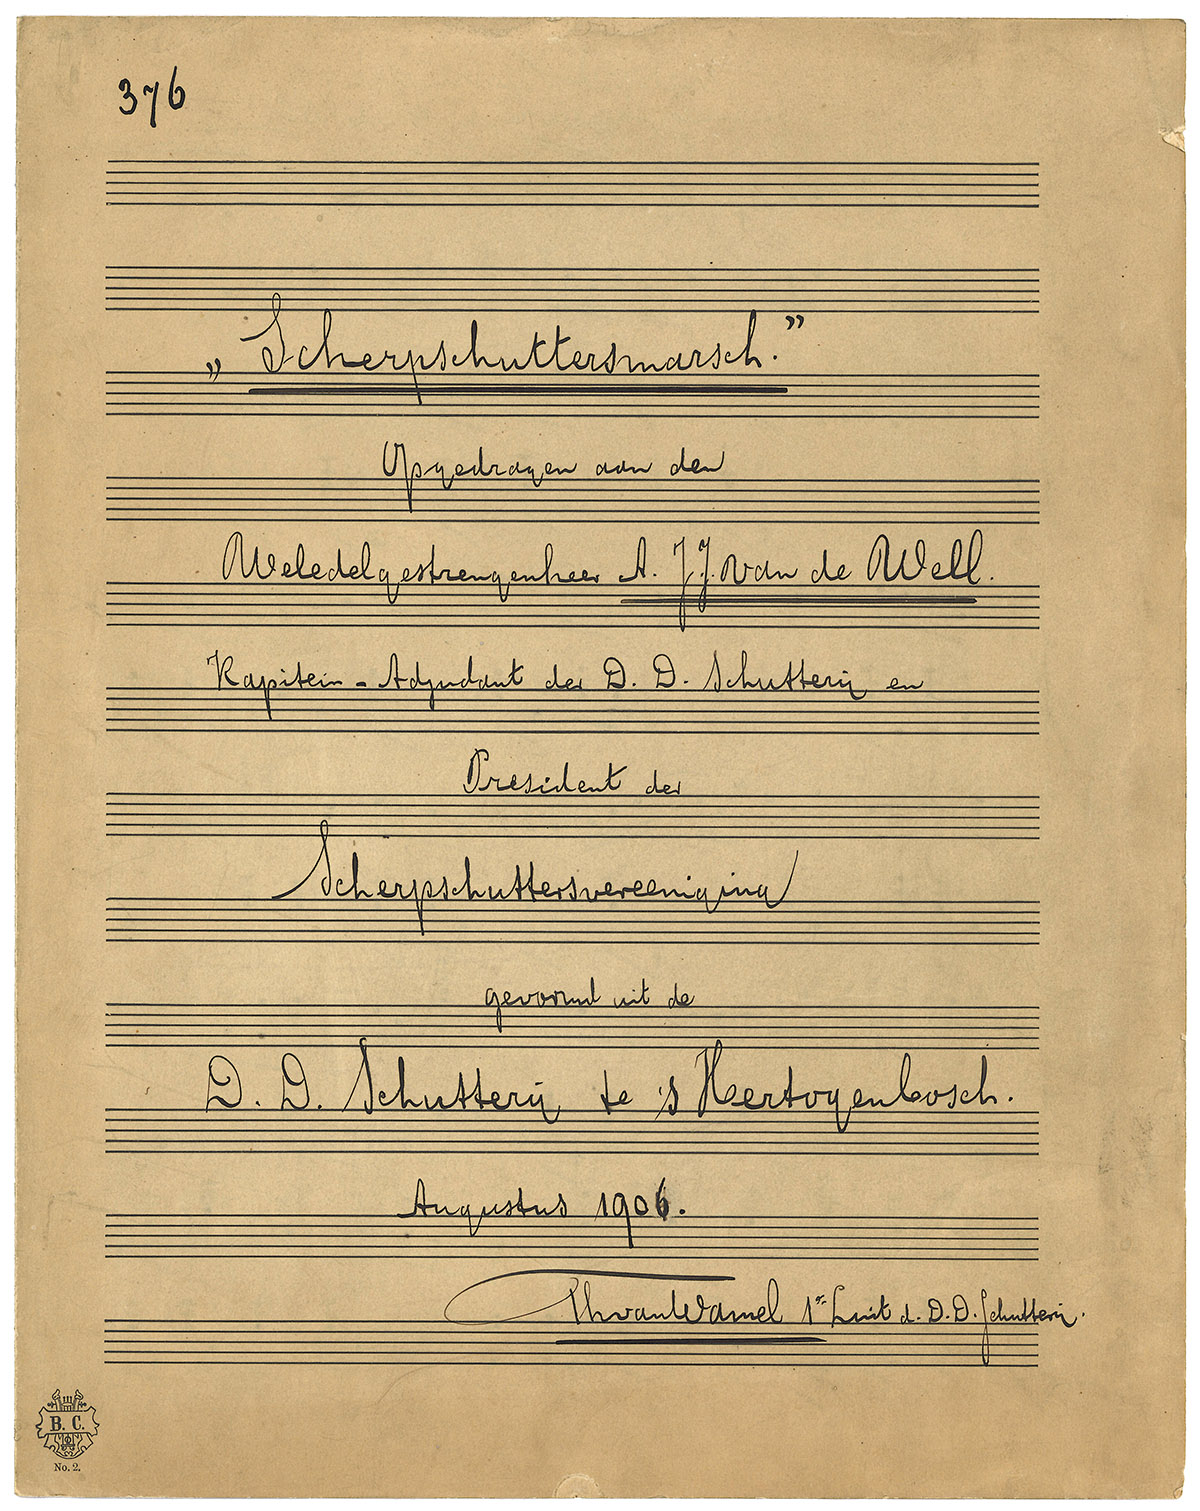 376
„Scherpschuttersmarsch.”
Opgedragen aan den
Weledelgestrengenheer A. J. J. van de Well.
Kapitein - Adjudant der D. D. Schutterij en
President der
Scherpschuttersvereeniging
gevormd uit de
D. D. Schutterij te 's Hertogenbosch.
Augustus 1906.
Th van Wamel 1e Luit d. D. D. Schutterij.
B. C.
No. 2.